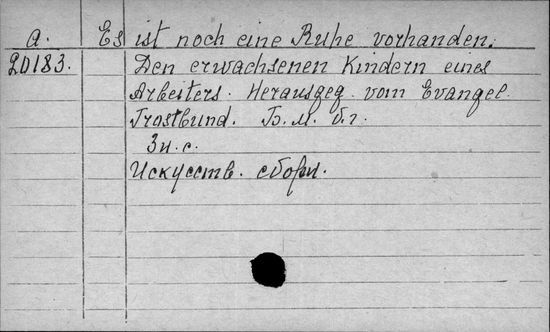 a. Es ist noch eine Ruhe vorhanden.
20183. Den erwachsenen Kindern eines
Arbeiters. Herausgeg. vom Evangel.
Trostbund. Б.м. б.г.
3н.с.
Искусств. сборн.